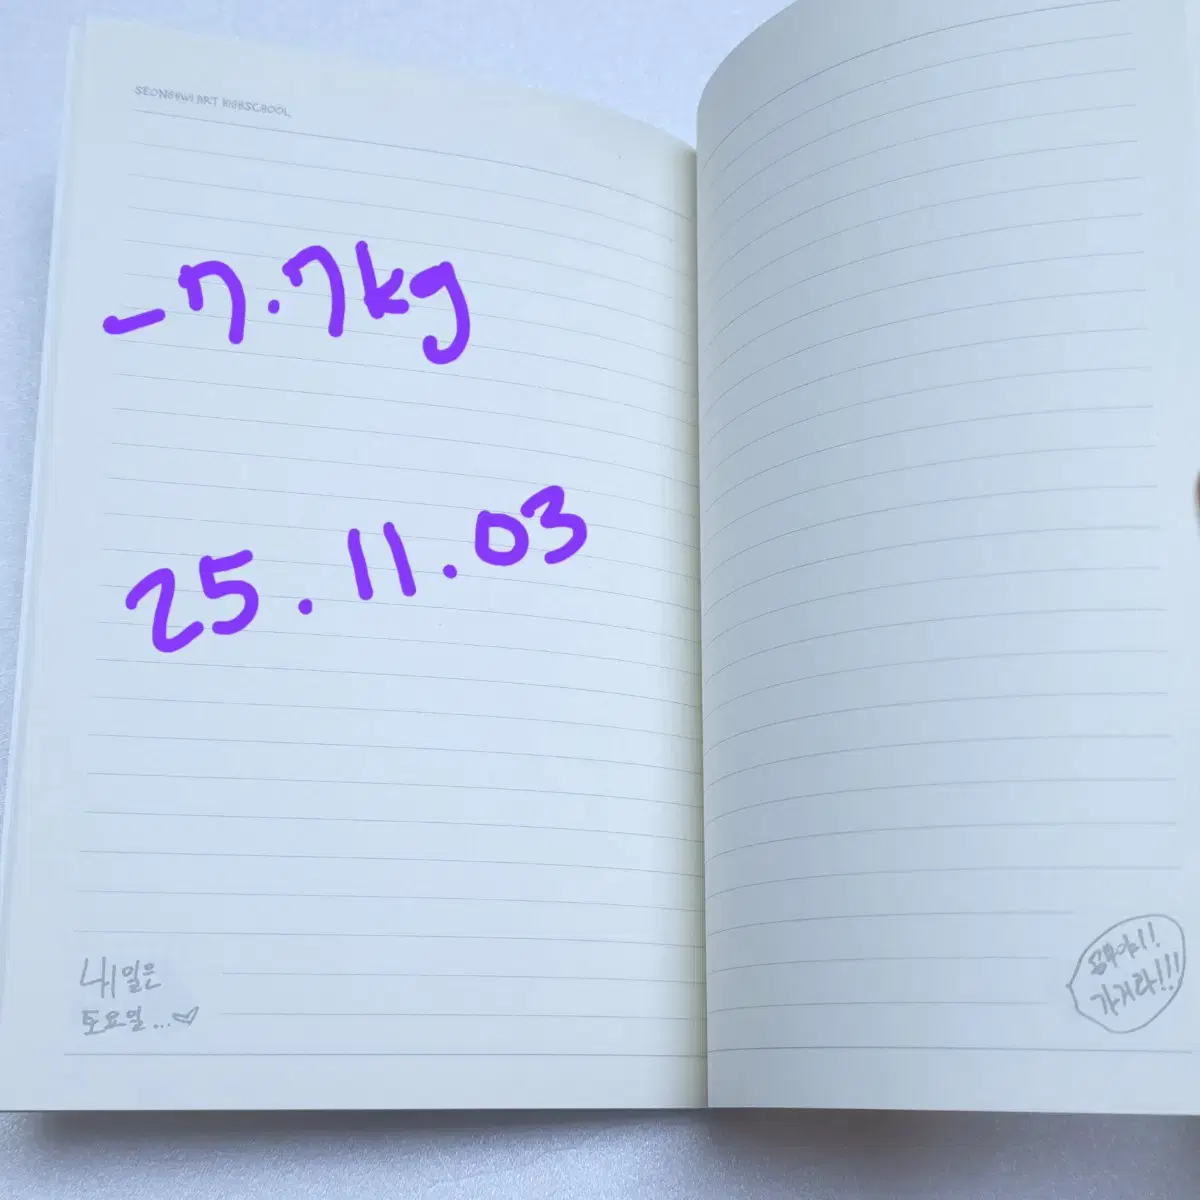 SEONGHWI ART HIGHSCHOOL
-7.7kg
25.11.03
내일은
토요일...
가거라!!!